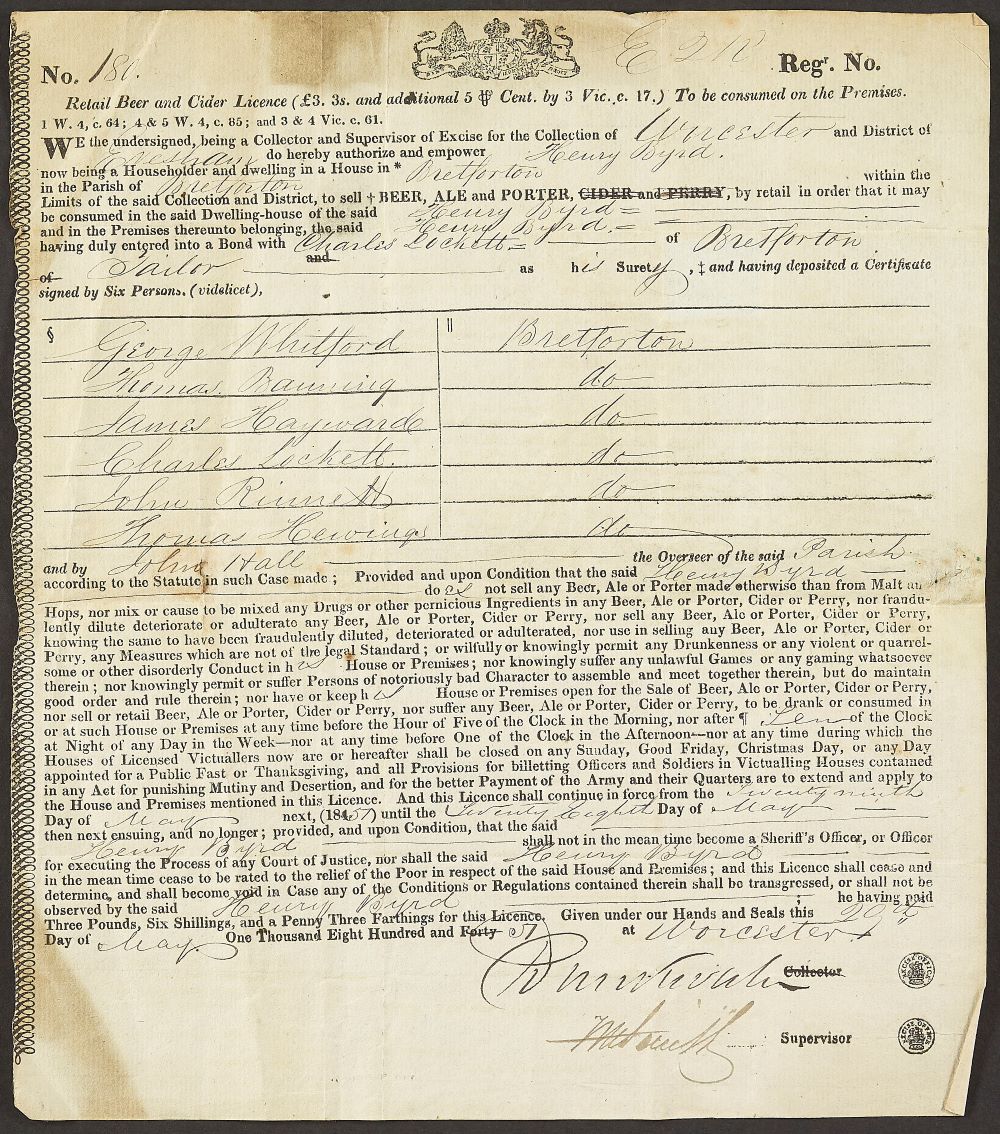 No. 180. E 2 R Regr. No.
Retail Beer and Cider Licence (£3. 3s. and additional 5 ⅌ Cent. by 3 Vic. c. 17.) To be consumed on the Premises.
1 W. 4, c. 64; 4 & 5 W. 4, c. 85; and 3 & 4 Vic. c. 61.
WE the undersigned, being a Collector and Supervisor of Excise for the Collection of Worcester and District of
Evesham do hereby authorize and empower Henry Byrd.
now being a Householder and dwelling in a House in * Bretforton
in the Parish of Bretforton within the
Limits of the said Collection and District, to sell † BEER, ALE and PORTER, CIDER and PERRY, by retail in order that it may
be consumed in the said Dwelling-house of the said Henry Byrd
and in the Premises thereunto belonging, the said Henry Byrd.
having duly entered into a Bond with Charles Lockett of Bretforton
and
of Tailor as his Surety, ‡ and having deposited a Certificate
signed by Six Persons. (videlicet),
§ George Whitford || Bretforton
Thomas Banning do
James Hayward do
Charles Lockett. do
John Rimell do
Thomas Hewings do
and by John Hall the Overseer of the said Parish
according to the Statute in such Case made; Provided and upon Condition that the said Henry Byrd
does not sell any Beer, Ale or Porter made otherwise than from Malt an
Hops, nor mix or cause to be mixed any Drugs or other pernicious Ingredients in any Beer, Ale or Porter, Cider or Perry, nor fraudu-
lently dilute deteriorate or adulterate any Beer, Ale or Porter, Cider or Perry, nor sell any Beer, Ale or Porter, Cider or Perry,
knowing the same to have been fraudulently diluted, deteriorated or adulterated, nor use in selling any Beer, Ale or Porter, Cider or
Perry, any Measures which are not of the legal Standard; or wilfully or knowingly permit any Drunkenness or any violent or quarrel-
some or other disorderly Conduct in his House or Premises; nor knowingly suffer any unlawful Games or any gaming whatsoever
therein; nor knowingly permit or suffer Persons of notoriously bad Character to assemble and meet together therein, but do maintain
good order and rule therein; nor have or keep his House or Premises open for the Sale of Beer, Ale or Porter, Cider or Perry,
nor sell or retail Beer, Ale or Porter, Cider or Perry, nor suffer any Beer, Ale or Porter, Cider or Perry, to be drank or consumed in
or at such House or Premises at any time before the Hour of Five of the Clock in the Morning, nor after ¶ Ten of the Clock
at Night of any Day in the Week—nor at any time before One of the Clock in the Afternoon—nor at any time during which the
Houses of Licensed Victuallers now are or hereafter shall be closed on any Sunday, Good Friday, Christmas Day, or any Day
appointed for a Public Fast or Thanksgiving, and all Provisions for billetting Officers and Soldiers in Victualling Houses contained
in any Act for punishing Mutiny and Desertion, and for the better Payment of the Army and their Quarters are to extend and apply to
the House and Premises mentioned in this Licence. And this Licence shall continue in force from the Twenty ninth
Day of May next, (1851) until the Twenty Eighth Day of May
then next ensuing, and no longer; provided, and upon Condition, that the said
Henry Byrd shall not in the mean time become a Sheriff's Officer, or Officer
for executing the Process of any Court of Justice, nor shall the said Henry Byrd
in the mean time cease to be rated to the relief of the Poor in respect of the said House and Premises; and this Licence shall cease and
determine, and shall become void in Case any of the Conditions or Regulations contained therein shall be transgressed, or shall not be
observed by the said Henry Byrd ; he having paid
Three Pounds, Six Shillings, and a Penny Three Farthings for this Licence. Given under our Hands and Seals this 29th
Day of May. One Thousand Eight Hundred and Forty 51 at Worcester
Collector EXCISE OFFICE
Supervisor EXCISE OFFICE